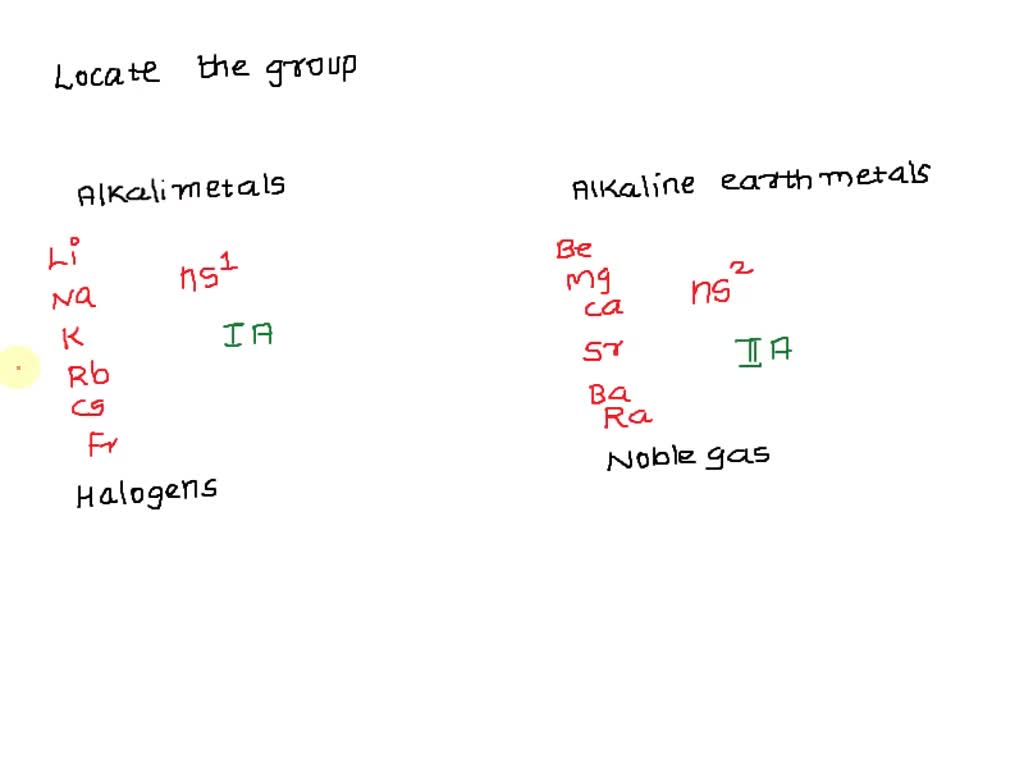 Locate the group
Alkali metals
Li
Na
K
Rb
Cs
Fr
ns¹
IA
Alkaline earth metals
Be
Mg
Ca
Sr
Ba
Ra
ns²
IIA
Halogens
Noble gas